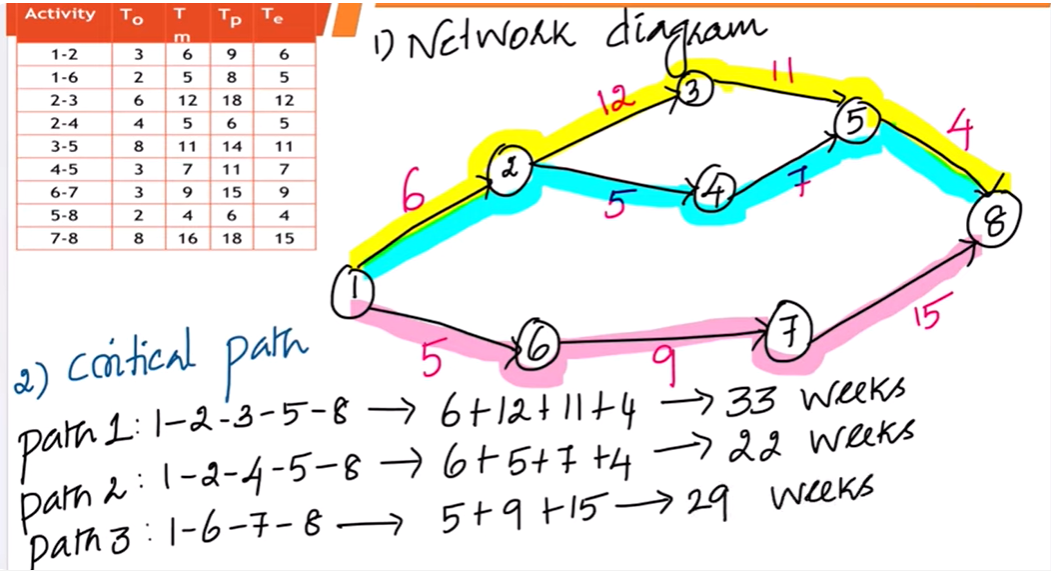 Activity To Tm Tp Te
1-2 3 6 9 6
1-6 2 5 8 5
2-3 6 12 18 12
2-4 4 5 6 5
3-5 8 11 14 11
4-5 3 7 11 7
6-7 3 9 15 9
5-8 2 4 6 4
7-8 8 16 18 15
1) Network diagram
11
3
12
5
4
2
6
4
7
5
8
1
15
7
6
9
5
2) Critical path
path 1: 1-2-3-5-8 → 6+12+11+4 → 33 weeks
path 2: 1-2-4-5-8 → 6+5+7+4 → 22 weeks
path 3: 1-6-7-8 → 5+9+15 → 29 weeks